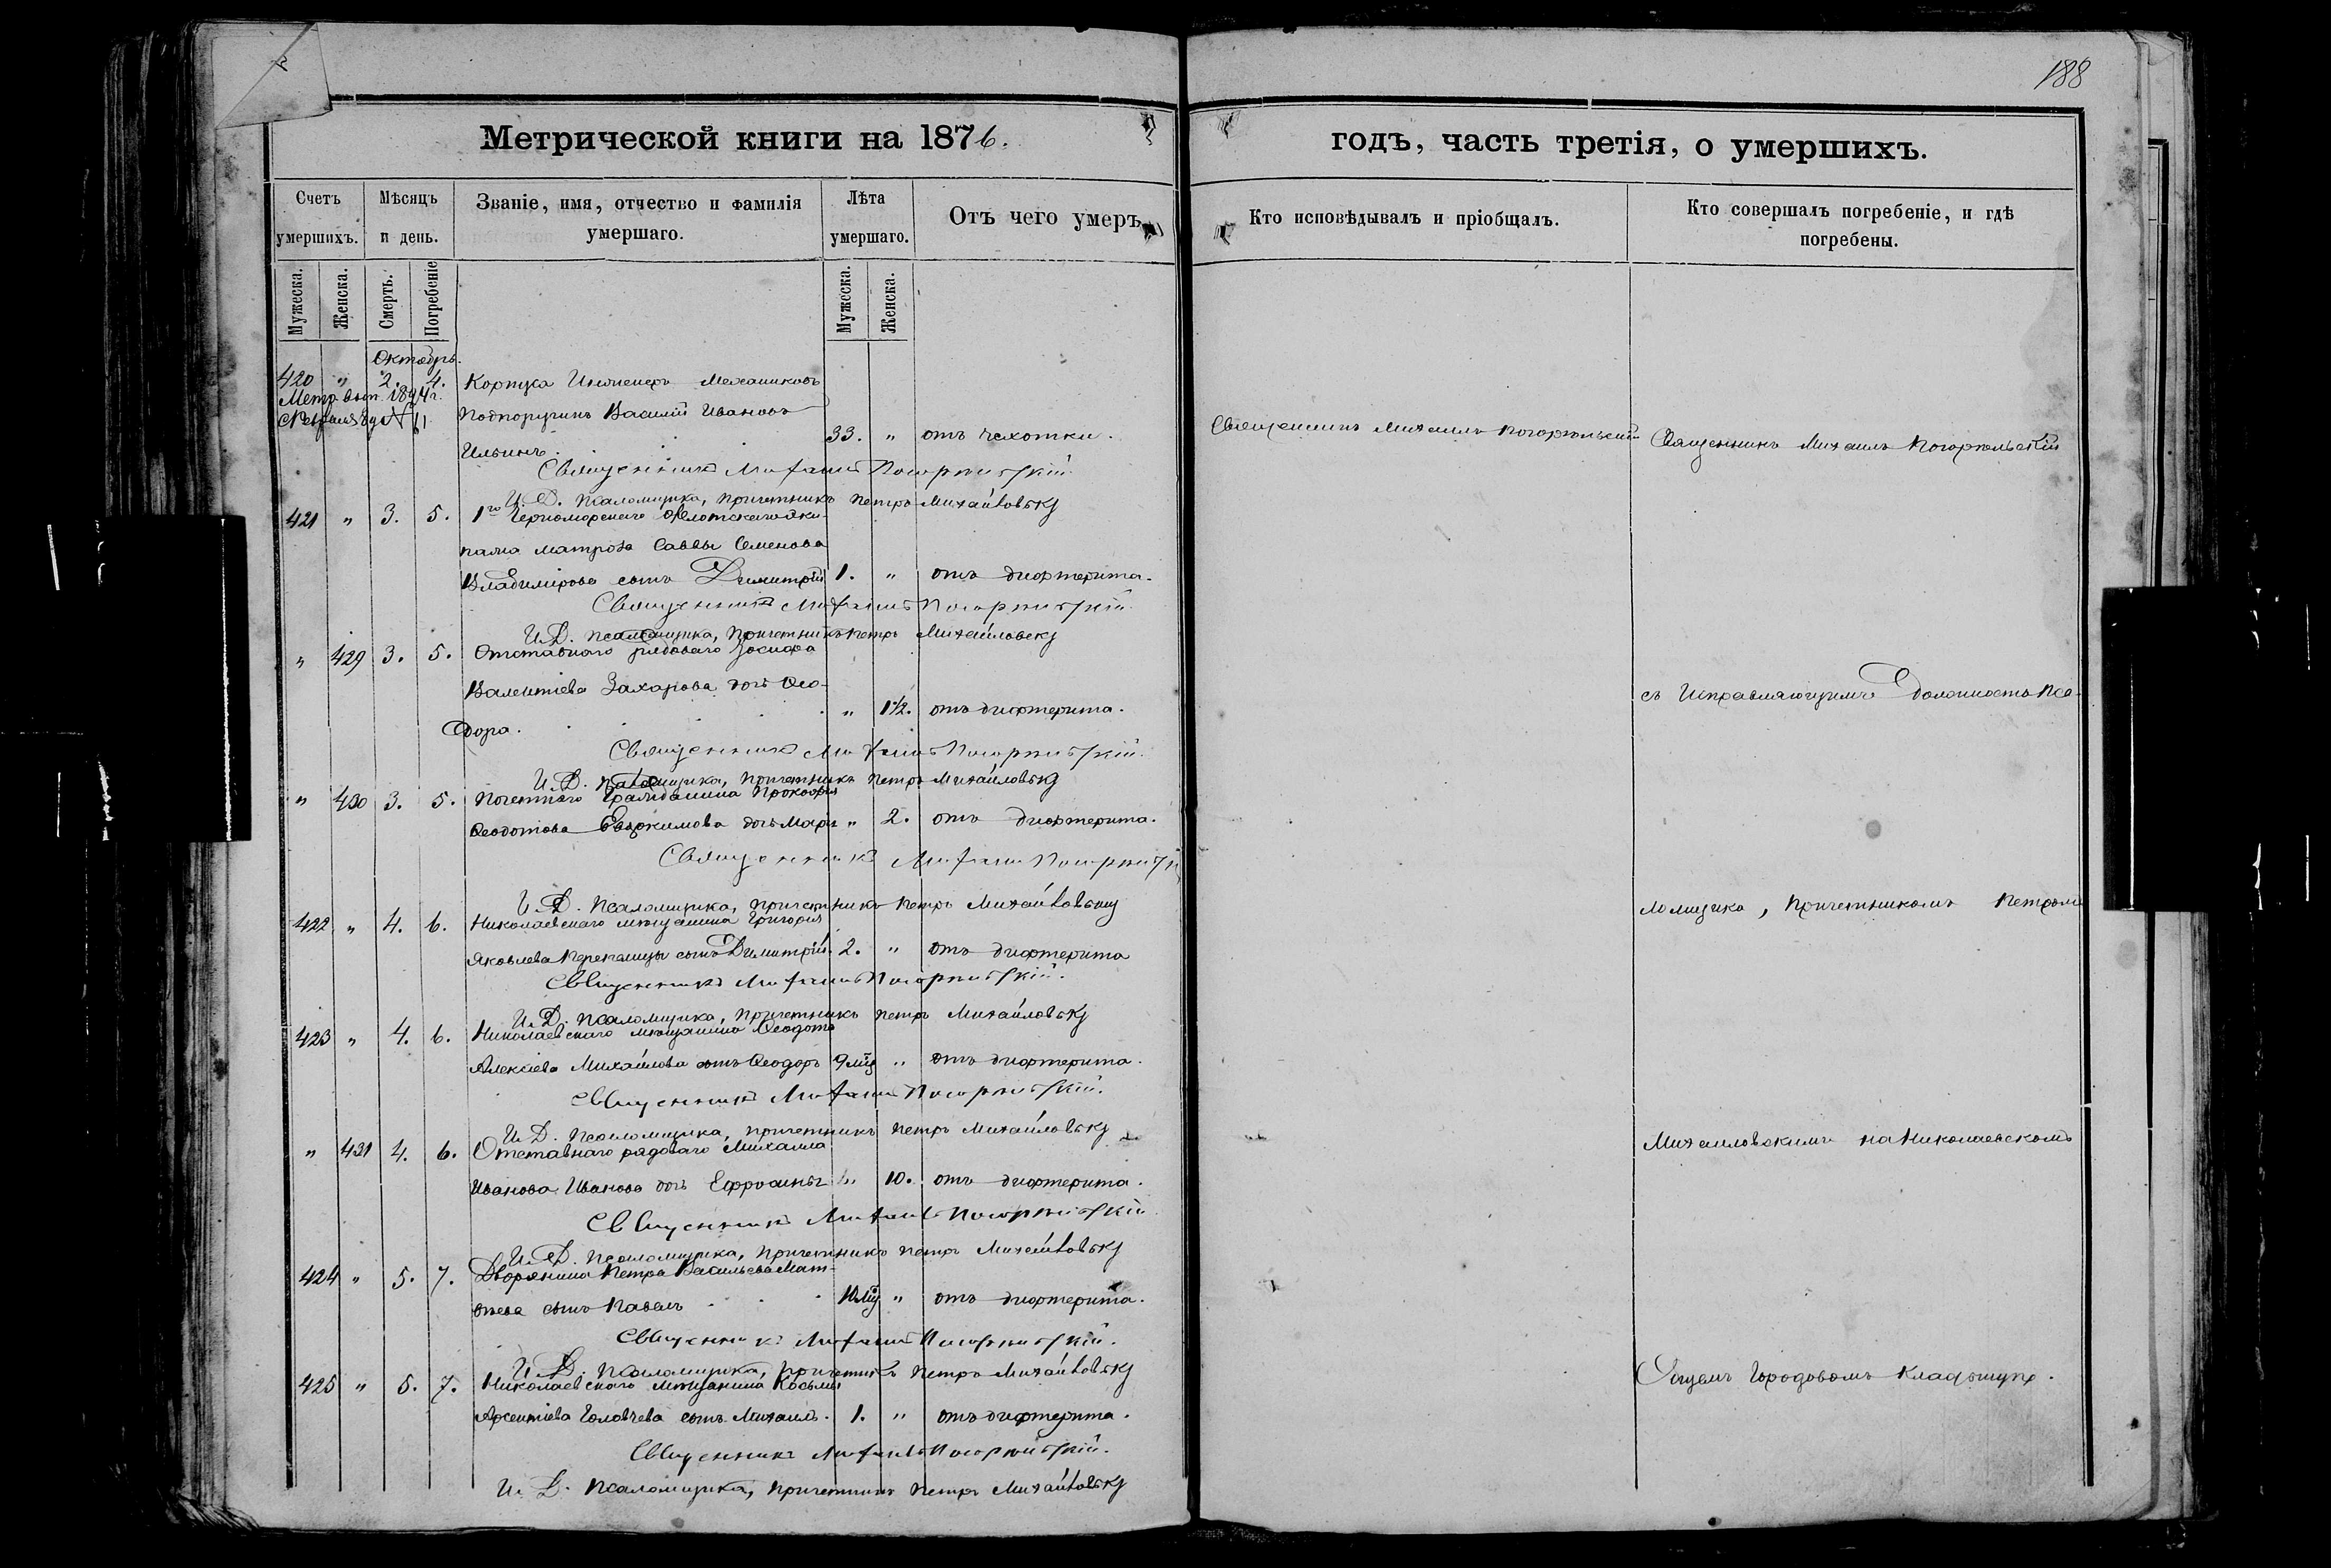 188
Метрической книги на 1876.
годъ, часть третія, о умершихъ.
Счетъ умершихъ.
Мѣсяцъ и день.
Званіе, имя, отчество и фамилія умершаго.
Лѣта умершаго.
Отъ чего умеръ
Кто исповѣдывалъ и пріобщалъ.
Кто совершалъ погребеніе, и гдѣ погребены.
Мужеска. Женска. Смерть. Погребеніе Мужеска. Женска.
Октябрь.
420 " 2. 4. Корпуса Инженеръ Механиковъ
Метр. вып. 1894 г.
Подпоручикъ Василій Ивановъ
Февраля № 11
33. " отъ чахотки. Священникъ Михаилъ Погорѣльскій Священникъ Михаилъ Погорѣльскій
Ильинъ.
Священникъ Михаилъ Погорѣльскій.
И. Д. Псаломщика, Причетникъ Петръ Михайловскій
421 " 3. 5. 1го Черноморскаго Флотскаго Эки-
пажа матроса Саввы Семенова
Владимірова сынъ Димитрій 1. " отъ дифтерита.
Священникъ Михаилъ Погорѣльскій.
И. Д. Псаломщика, Причетникъ Петръ Михайловскій
" 429 3. 5. Отставнаго рядоваго Іосифа
Валентіева Захарова дочь Ѳео-
" 1½. отъ дифтерита. съ Исправляющимъ Должность Пса-
дора.
Священникъ Михаилъ Погорѣльскій.
И. Д. Псаломщика, Причетникъ Петръ Михайловскій
" 430 3. 5. Почетнаго Гражданина Прокофія
Ѳеодотова Евдокимова дочь Марія " 2. отъ дифтерита.
Священникъ Михаилъ Погорѣльскій
И. Д. Псаломщика, Причетникъ Петръ Михайловскій
ломщика, Причетникомъ Петромъ
422 " 4. 6. Николаевскаго мѣщанина Григорія
Яковлева сынъ Димитрій. 2. " отъ дифтерита
Священникъ Михаилъ Погорѣльскій.
И. Д. Псаломщика, Причетникъ Петръ Михайловскій
423 " 4. 6. Николаевскаго мѣщанина Ѳеодота
Алексіева Михайлова сынъ Ѳеодоръ 9 мцъ " отъ дифтерита.
Священникъ Михаилъ Погорѣльскій.
И. Д. Псаломщика, Причетникъ Петръ Михайловскій
" 431 4. 6. Отставнаго рядоваго Михаила
Михайловскимъ на Николаевскомъ
Иванова Иванова дочь Ефросинія " 10. отъ дифтерита.
Священникъ Михаилъ Погорѣльскій
И. Д. Псаломщика, Причетникъ Петръ Михайловскій
424 " 5. 7. Дворянина Петра Васильева Мат-
ѳеева сынъ Павелъ 10 мцъ " отъ дифтерита.
Священникъ Михаилъ Погорѣльскій.
И. Д. Псаломщика, Причетникъ Петръ Михайловскій
425 " 5. 7. Николаевскаго мѣщанина Косьмы
Общемъ Городовомъ Кладбищѣ.
Арсентіева Головчева сынъ Михаилъ. 1. " отъ дифтерита.
Священникъ Михаилъ Погорѣльскій.
И. Д. Псаломщика, Причетникъ Петръ Михайловскій